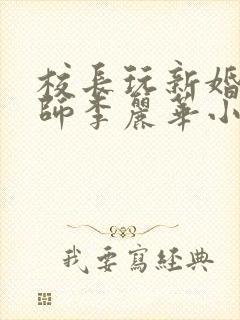 校長玩新婚
師李麗華小
我要寫經典